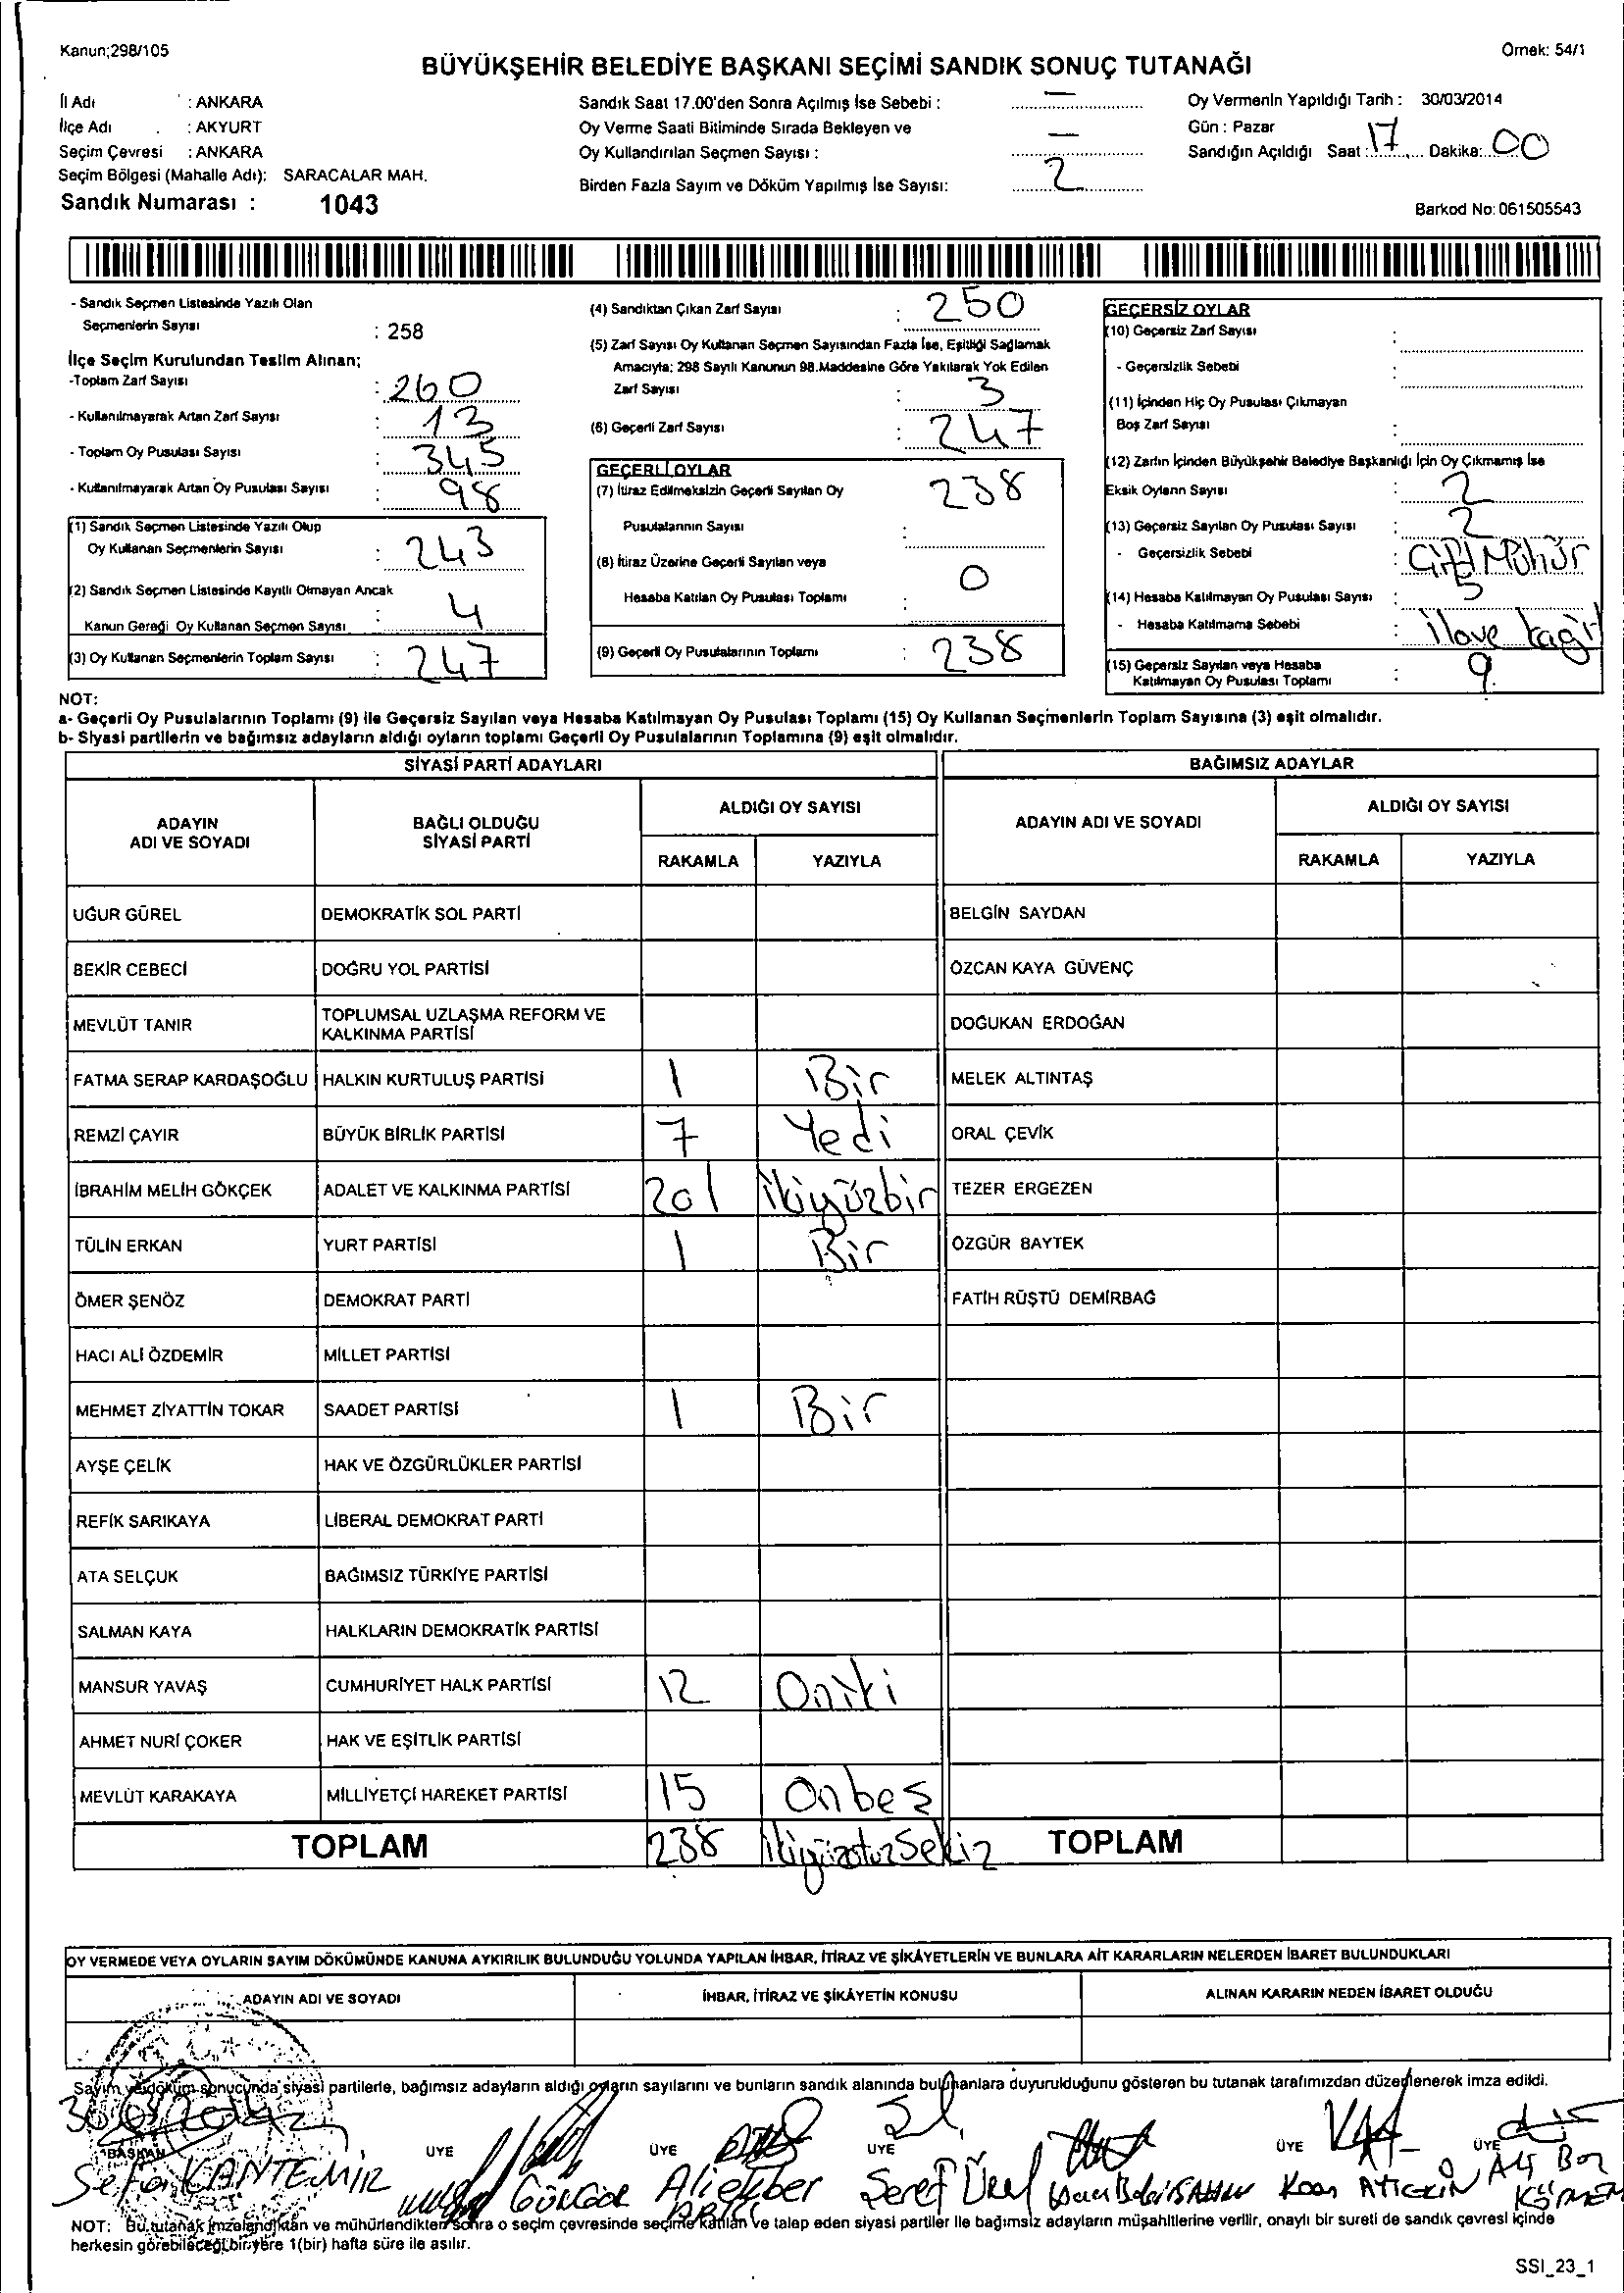 Kanun;298/105
Örnek: 54/1
BÜYÜKŞEHİR BELEDİYE BAŞKANI SEÇİMİ SANDIK SONUÇ TUTANAĞI
İl Adı : ANKARA
İlçe Adı : AKYURT
Seçim Çevresi : ANKARA
Seçim Bölgesi (Mahalle Adı): SARACALAR MAH.
Sandık Numarası : 1043
Sandık Saat 17.00'den Sonra Açılmış İse Sebebi : —
Oy Verme Saati Bitiminde Sırada Bekleyen ve
Oy Kullandırılan Seçmen Sayısı : —
Birden Fazla Sayım ve Döküm Yapılmış İse Sayısı: 2
Oy Vermenin Yapıldığı Tarih : 30/03/2014
Gün : Pazar
Sandığın Açıldığı Saat : 17 Dakika: 00
Barkod No: 061505543
- Sandık Seçmen Listesinde Yazılı Olan
Seçmenlerin Sayısı : 258
İlçe Seçim Kurulundan Teslim Alınan;
-Toplam Zarf Sayısı : 260
- Kullanılmayarak Artan Zarf Sayısı : 13
- Toplam Oy Pusulası Sayısı : 345
- Kullanılmayarak Artan Oy Pusulası Sayısı : 98
(1) Sandık Seçmen Listesinde Yazılı Olup
Oy Kullanan Seçmenlerin Sayısı : 243
(2) Sandık Seçmen Listesinde Kayıtlı Olmayan Ancak
Kanun Gereği Oy Kullanan Seçmen Sayısı : 4
(3) Oy Kullanan Seçmenlerin Toplam Sayısı : 247
(4) Sandıktan Çıkan Zarf Sayısı : 250
(5) Zarf Sayısı Oy Kullanan Seçmen Sayısından Fazla İse, Eşitliği Sağlamak
Amacıyla; 298 Sayılı Kanunun 98.Maddesine Göre Yakılarak Yok Edilen
Zarf Sayısı : 3
(6) Geçerli Zarf Sayısı : 247
GEÇERLİ OYLAR
(7) İtiraz Edilmeksizin Geçerli Sayılan Oy
Pusulalarının Sayısı : 238
(8) İtiraz Üzerine Geçerli Sayılan veya
Hesaba Katılan Oy Pusulası Toplamı : 0
(9) Geçerli Oy Pusulalarının Toplamı : 238
GEÇERSİZ OYLAR
(10) Geçersiz Zarf Sayısı :
- Geçersizlik Sebebi :
(11) İçinden Hiç Oy Pusulası Çıkmayan
Boş Zarf Sayısı :
(12) Zarfın İçinden Büyükşehir Belediye Başkanlığı İçin Oy Çıkmamış İse
Eksik Oyların Sayısı : 2
(13) Geçersiz Sayılan Oy Pusulası Sayısı : 2
- Geçersizlik Sebebi : Çift Mühür
(14) Hesaba Katılmayan Oy Pusulası Sayısı : 5
- Hesaba Katılmama Sebebi : ilave kağıt
(15) Geçersiz Sayılan veya Hesaba
Katılmayan Oy Pusulası Toplamı : 9
NOT:
a- Geçerli Oy Pusulalarının Toplamı (9) ile Geçersiz Sayılan veya Hesaba Katılmayan Oy Pusulası Toplamı (15) Oy Kullanan Seçmenlerin Toplam Sayısına (3) eşit olmalıdır.
b- Siyasi partilerin ve bağımsız adayların aldığı oyların toplamı Geçerli Oy Pusulalarının Toplamına (9) eşit olmalıdır.
SİYASİ PARTİ ADAYLARI
BAĞIMSIZ ADAYLAR
ADAYIN ADI VE SOYADI
BAĞLI OLDUĞU SİYASİ PARTİ
ALDIĞI OY SAYISI
RAKAMLA YAZIYLA
ADAYIN ADI VE SOYADI
ALDIĞI OY SAYISI
RAKAMLA YAZIYLA
UĞUR GÜREL DEMOKRATİK SOL PARTİ BELGİN SAYDAN
BEKİR CEBECİ DOĞRU YOL PARTİSİ ÖZCAN KAYA GÜVENÇ
MEVLÜT TANIR TOPLUMSAL UZLAŞMA REFORM VE KALKINMA PARTİSİ DOĞUKAN ERDOĞAN
FATMA SERAP KARDAŞOĞLU HALKIN KURTULUŞ PARTİSİ 1 Bir MELEK ALTINTAŞ
REMZİ ÇAYIR BÜYÜK BİRLİK PARTİSİ 7 Yedi ORAL ÇEVİK
İBRAHİM MELİH GÖKÇEK ADALET VE KALKINMA PARTİSİ 201 ikiyüzbir TEZER ERGEZEN
TÜLİN ERKAN YURT PARTİSİ 1 Bir ÖZGÜR BAYTEK
ÖMER ŞENÖZ DEMOKRAT PARTİ FATİH RÜŞTÜ DEMİRBAĞ
HACI ALİ ÖZDEMİR MİLLET PARTİSİ
MEHMET ZİYATTİN TOKAR SAADET PARTİSİ 1 Bir
AYŞE ÇELİK HAK VE ÖZGÜRLÜKLER PARTİSİ
REFİK SARIKAYA LİBERAL DEMOKRAT PARTİ
ATA SELÇUK BAĞIMSIZ TÜRKİYE PARTİSİ
SALMAN KAYA HALKLARIN DEMOKRATİK PARTİSİ
MANSUR YAVAŞ CUMHURİYET HALK PARTİSİ 12 Oniki
AHMET NURİ ÇOKER HAK VE EŞİTLİK PARTİSİ
MEVLÜT KARAKAYA MİLLİYETÇİ HAREKET PARTİSİ 15 Onbeş
TOPLAM 238 ikiyüzotuzsekiz TOPLAM
OY VERMEDE VEYA OYLARIN SAYIM DÖKÜMÜNDE KANUNA AYKIRILIK BULUNDUĞU YOLUNDA YAPILAN İHBAR, İTİRAZ VE ŞİKÂYETLERİN VE BUNLARA AİT KARARLARIN NELERDEN İBARET BULUNDUKLARI
ADAYIN ADI VE SOYADI İHBAR, İTİRAZ VE ŞİKÂYETİN KONUSU ALINAN KARARIN NEDEN İBARET OLDUĞU
Sayım ve döküm sonucunda siyasi partilerle, bağımsız adayların aldığı oyların sayılarını ve bunların sandık alanında bulunanlara duyurulduğunu gösteren bu tutanak tarafımızdan düzenlenerek imza edildi.
BAŞKAN ÜYE ÜYE ÜYE ÜYE ÜYE
Sefa KANTEMİR GÜNGÖR Aliekber Şeref
NOT: Bu tutanak imzalandıktan ve mühürlendikten sonra o seçim çevresinde seçime katılan ve talep eden siyasi partiler ile bağımsız adayların müşahitlerine verilir, onaylı bir sureti de sandık çevresi içinde
herkesin görebileceği bir yere 1(bir) hafta süre ile asılır.
SSI_23_1